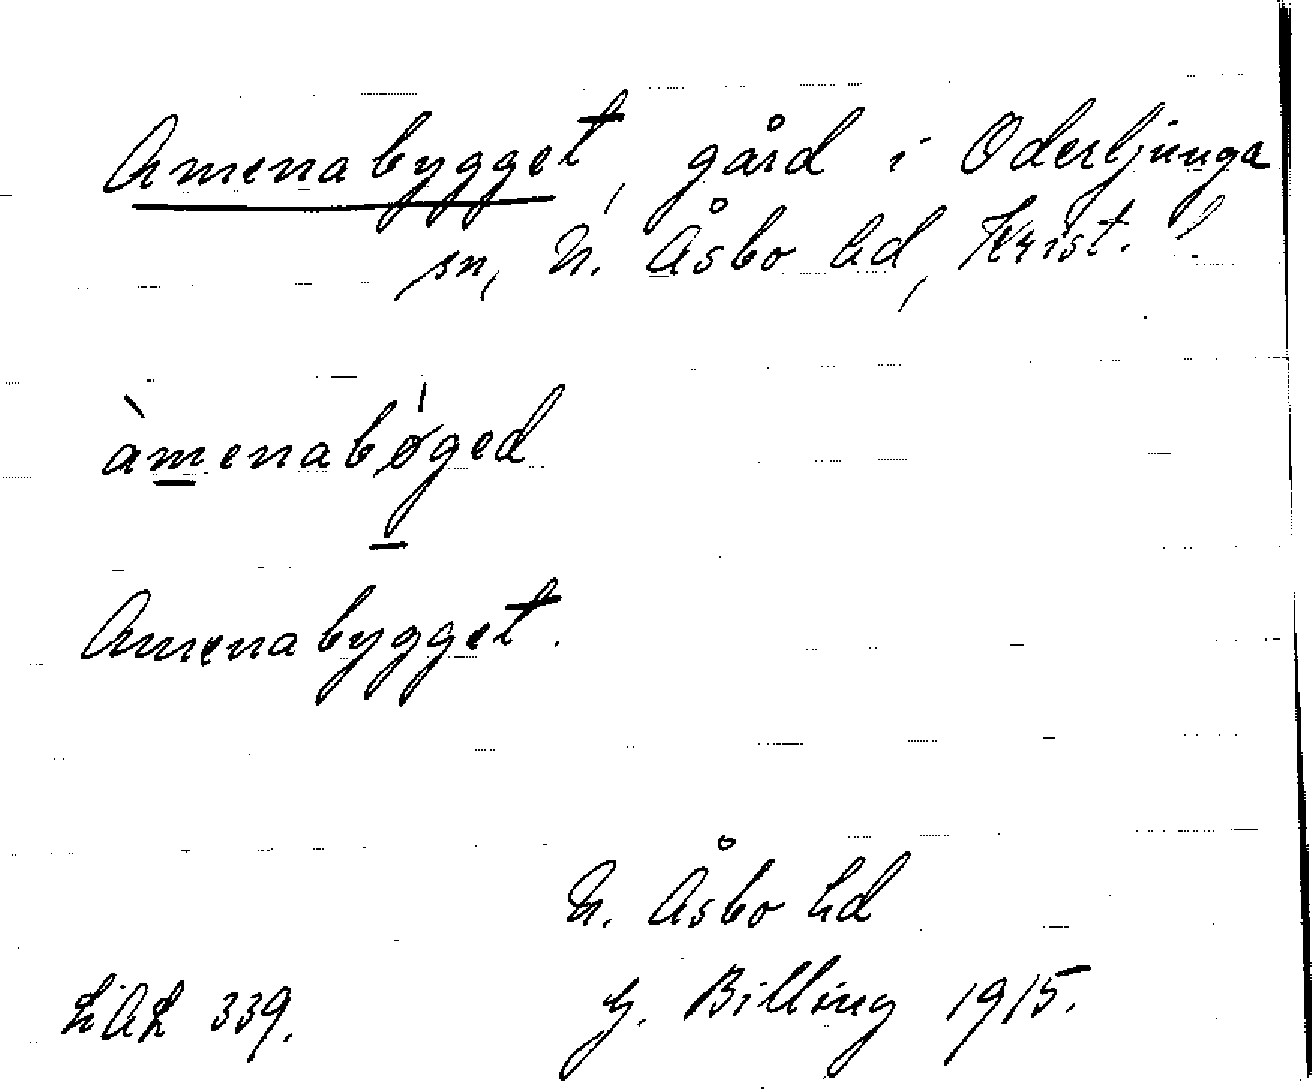 Amenabygget, gård i Oderljunga
sn, N. Åsbo hd, Krist. l.
àmenabøged
Amenabygget.
N. Åsbo hd
LAL 339. G. Billing 1915.